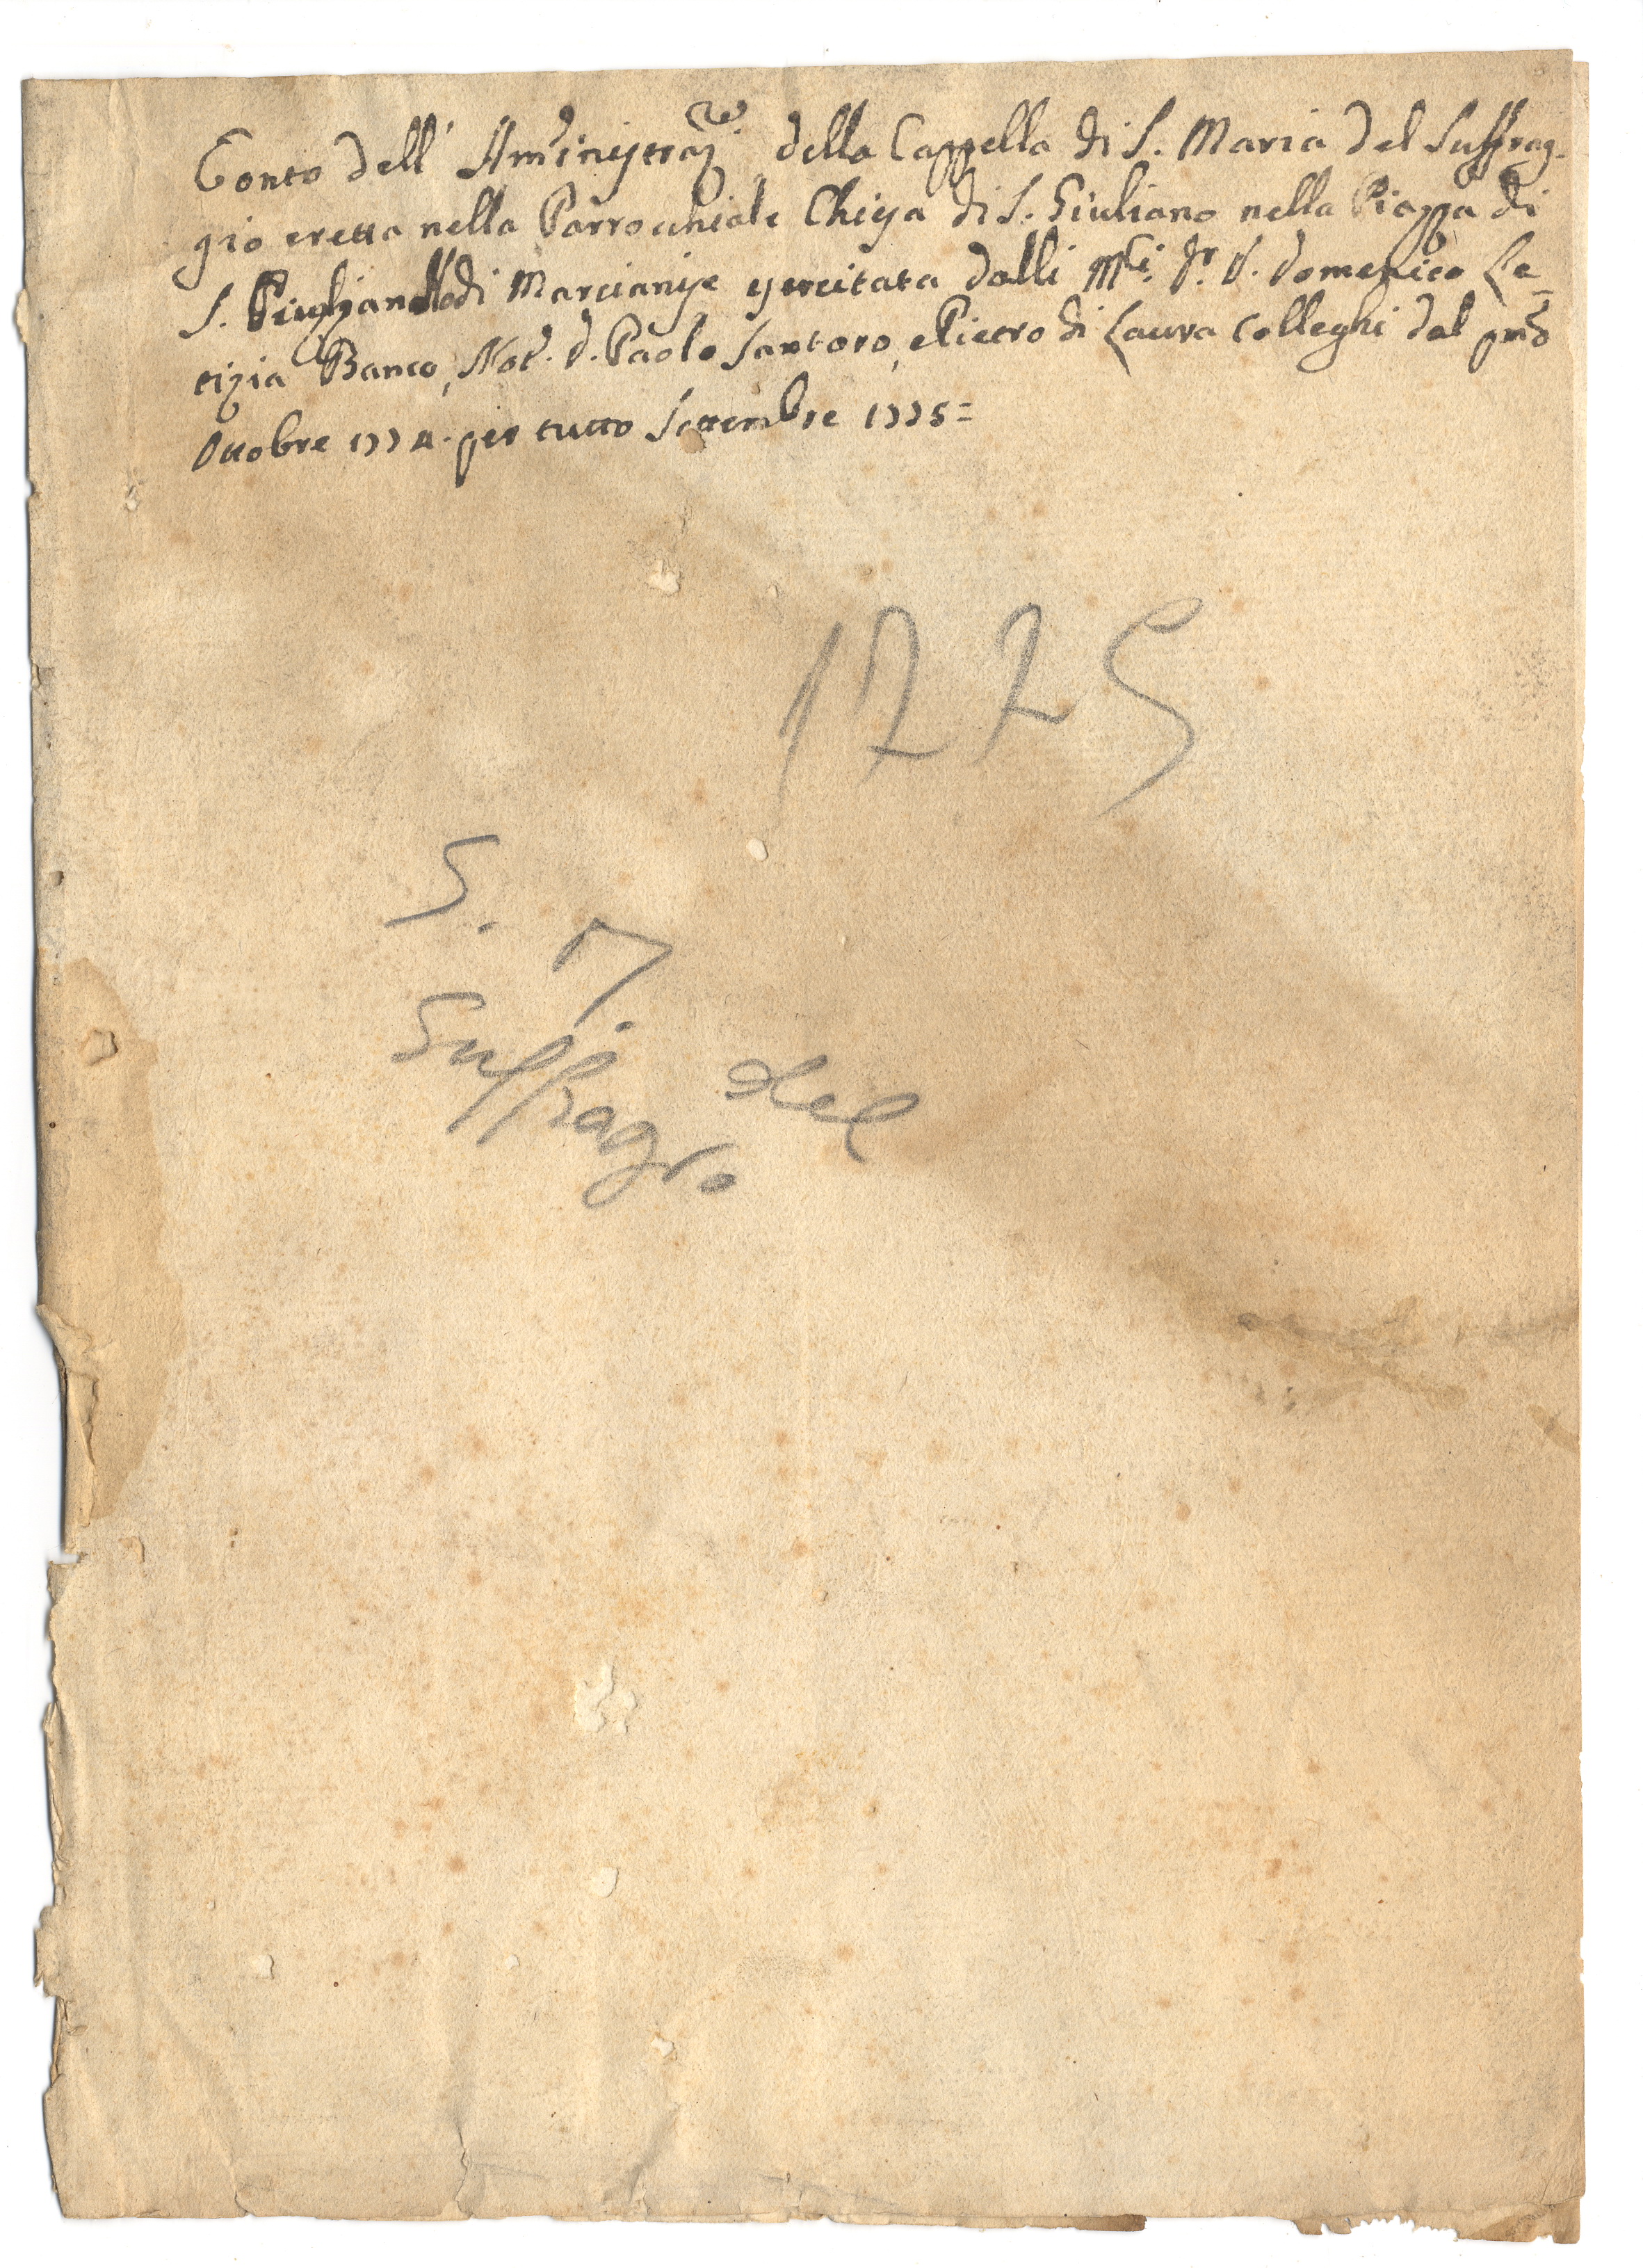 Conto dell' Am̃inistraz.ne della Cappella di S. Maria del Suffrag-
gio eretta nella Parrocchiale Chiesa di S. Giuliano nella Piazza di
S. Giuliano di Marcianise esercitata dalli M.ci Dr. D. Domenico Le-
tizia Banco, Not.r D. Paolo Santoro, e Pietro di Laura Colleghi dal pmõ
Ottobre 1774. per tutto Settembre 1775=
1775
S. M. del
Suffragio